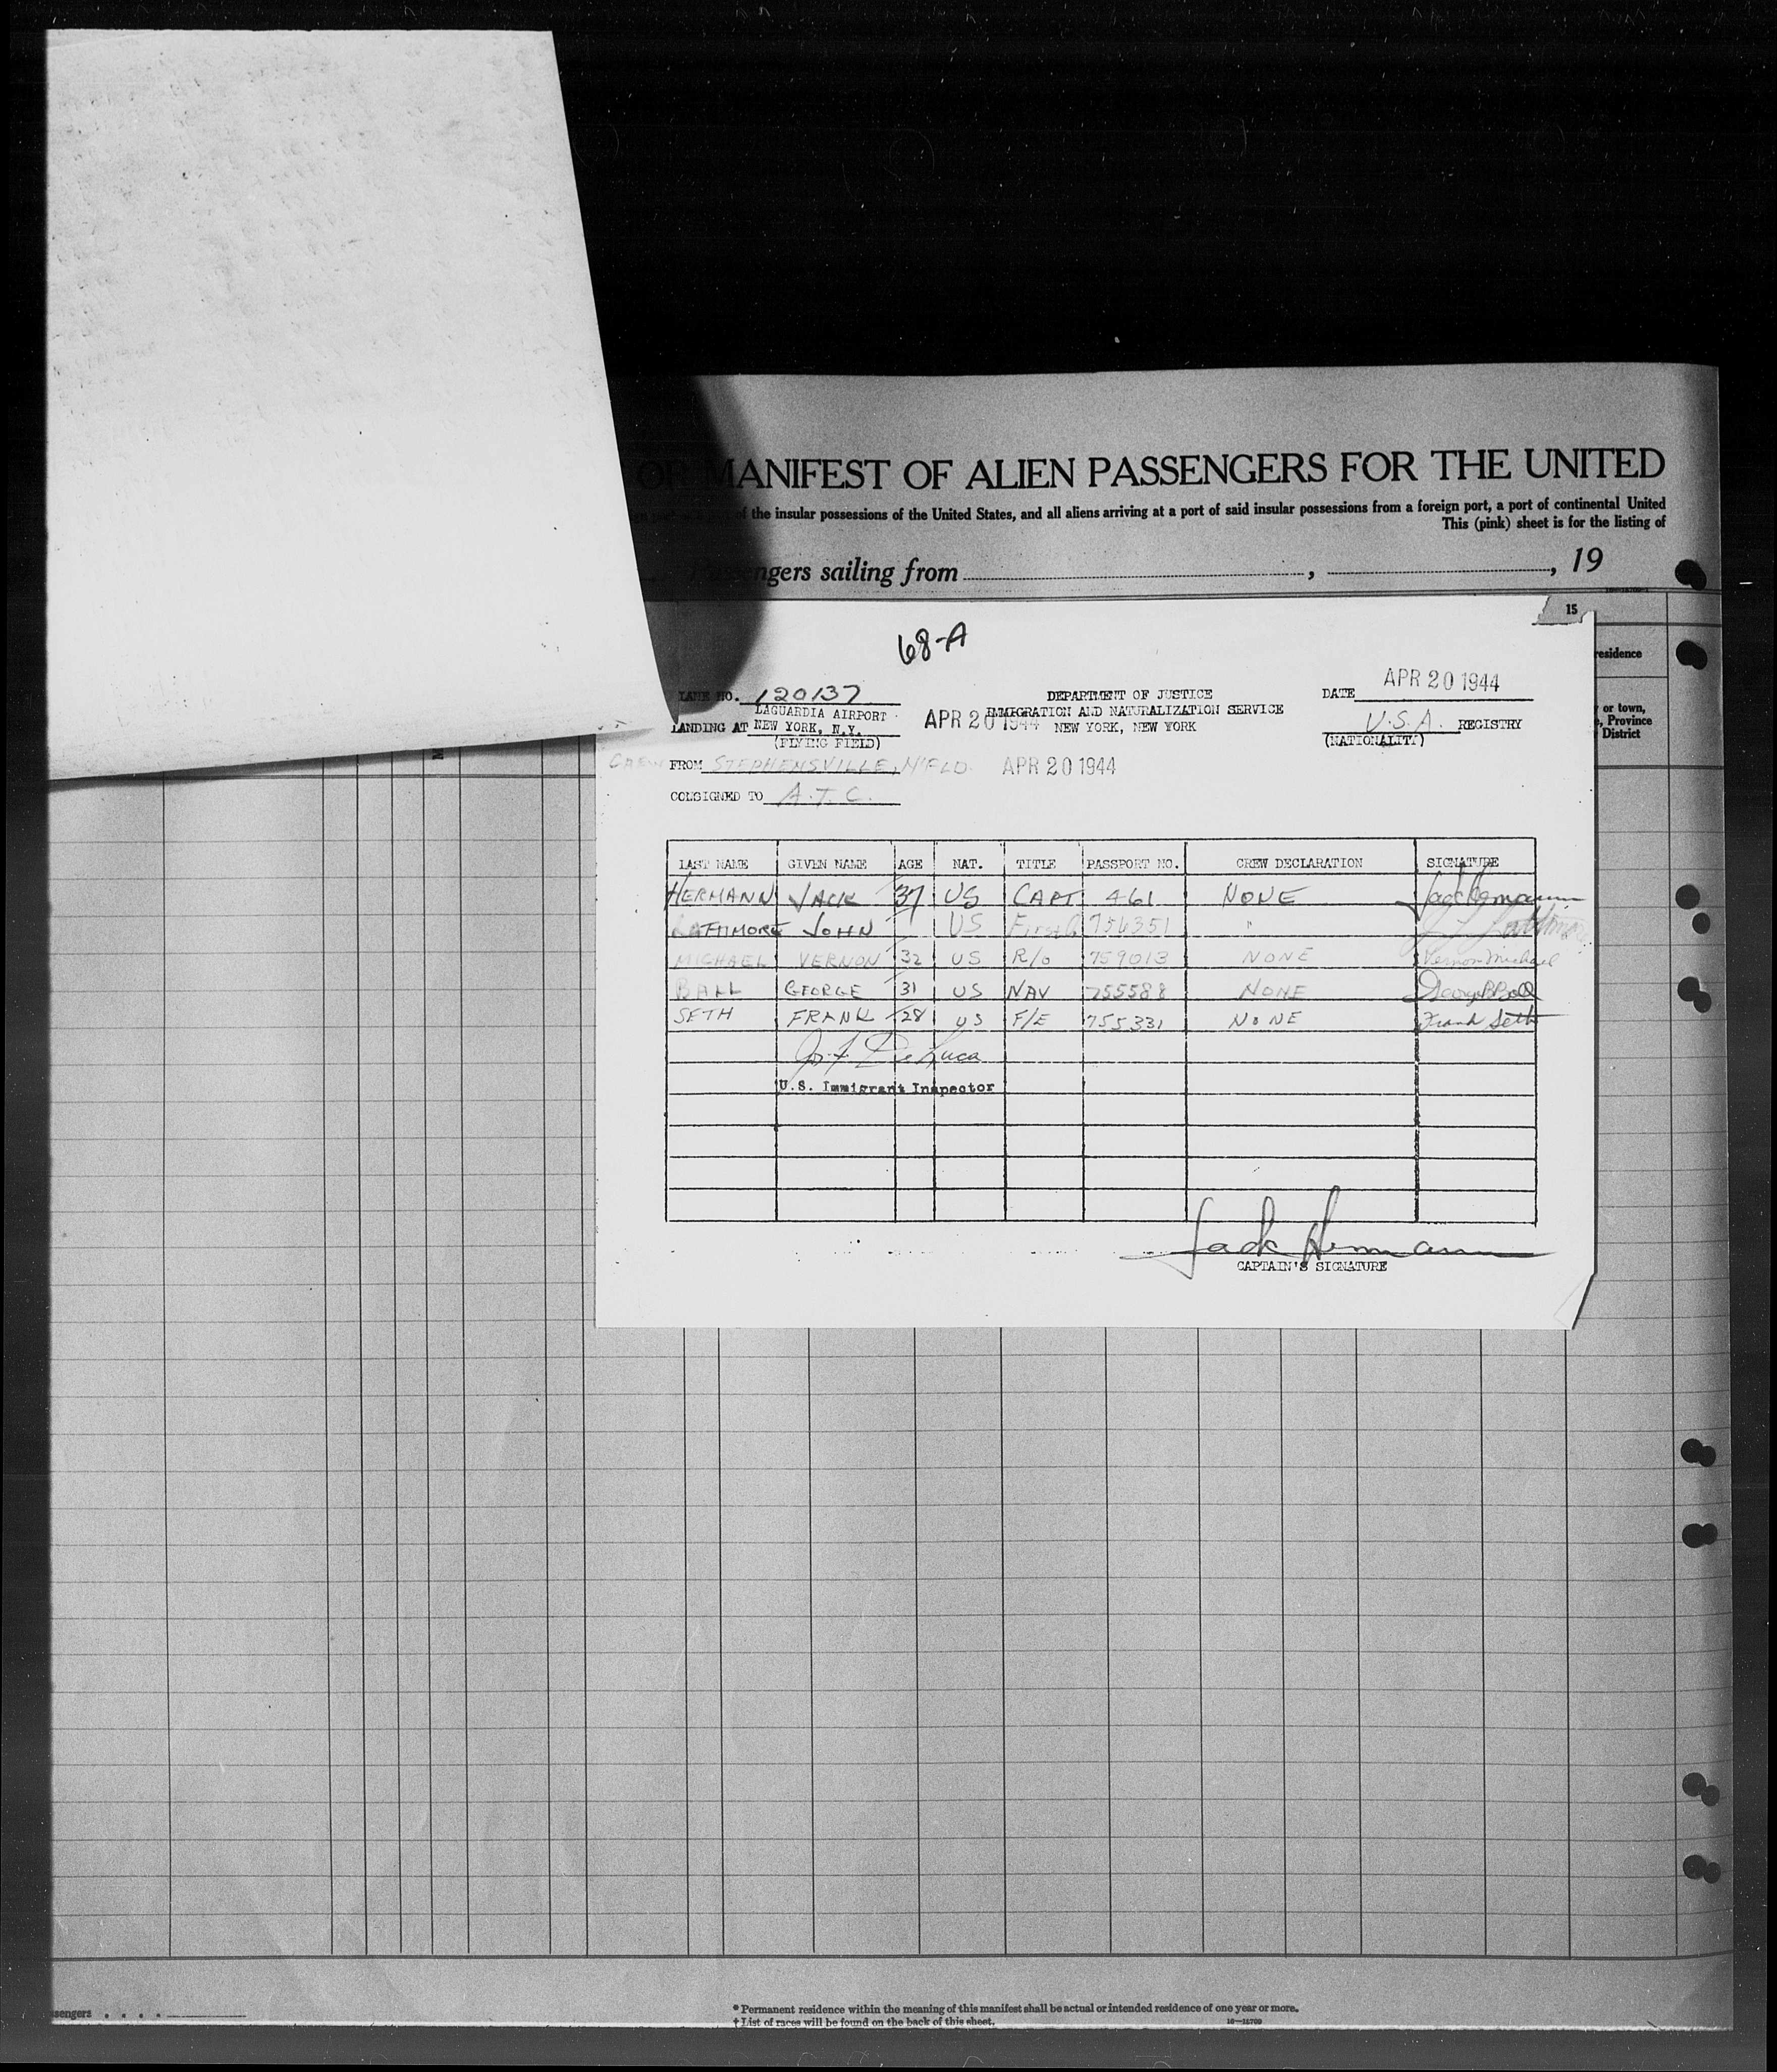 OF MANIFEST OF ALIEN PASSENGERS FOR THE UNITED
of the insular possessions of the United States, and all aliens arriving at a port of said insular possessions from a foreign port, a port of continental United
This (pink) sheet is for the listing of
Passengers sailing from , , 19
15
residence
or town,
Province
District
68-A
NO. 120137
DEPARTMENT OF JUSTICE
DATE APR 20 1944
LAGUARDIA AIRPORT
APR 20 1944
IMMIGRATION AND NATURALIZATION SERVICE
LANDING AT NEW YORK, N.Y.
NEW YORK, NEW YORK
U.S.A. REGISTRY
(FLYING FIELD)
(NATIONALITY)
CREW FROM STEPHENSVILLE, N'FLD. APR 20 1944
CONSIGNED TO A.T.C.
LAST NAME GIVEN NAME AGE NAT. TITLE PASSPORT NO. CREW DECLARATION SIGNATURE
HERMANN JACK 37 US CAPT 461 NONE Jack Hermann
JOHN US First 756351 "
MICHAEL VERNON 32 US R/o 759013 NONE Vernon Michael
BALL GEORGE 31 US NAV 755588 NONE George P Ball
SETH FRANK 28 US F/E 755331 NONE Frank Seth
De Luca
U.S. Immigrant Inspector
Jack Hermann
CAPTAIN'S SIGNATURE
* Permanent residence within the meaning of this manifest shall be actual or intended residence of one year or more.
† List of races will be found on the back of this sheet.